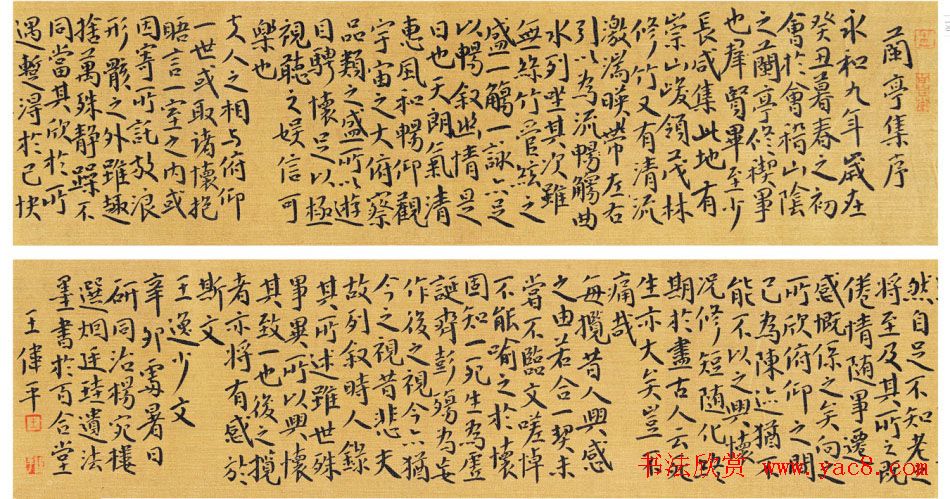 蘭亭集序
永和九年歲在
癸丑暮春之初
會於會稽山陰
之蘭亭修禊事
也群賢畢至少
長咸集此地有
崇山峻領茂林
修竹又有清流
激湍暎帶左右
引以為流觴曲
水列坐其次雖
無絲竹管弦之
盛一觴一詠亦足
以暢敘幽情是
日也天朗氣清
惠風和暢仰觀
宇宙之大俯察
品類之盛所以遊
目騁懷足以極
視聽之娛信可
樂也
夫人之相與俯仰
一世或取諸懷抱
晤言一室之內或
因寄所託放浪
形骸之外雖趣
捨萬殊靜躁不
同當其欣於所
遇暫得於己快
然自足不知老之
將至及其所之既
倦情隨事遷
感慨係之矣向之
所欣俯仰之間
已為陳迹猶不
能不以之興懷
況修短隨化終
期於盡古人云死
生亦大矣豈不
痛哉
每攬昔人興感
之由若合一契未
嘗不臨文嗟悼
不能喻之於懷
固知一死生為虛
誕齊彭殤為妄
作後之視今亦猶
今之視昔悲夫
故列敘時人錄
其所述雖世殊
事異所以興懷
其致一也後之攬
者亦將有感於
斯文
王逸少文
辛卯處暑日
研同治楊宛樓
選烟廷珪遺法
墨書於百合堂
王偉平
书法欣赏 www.yac8.com